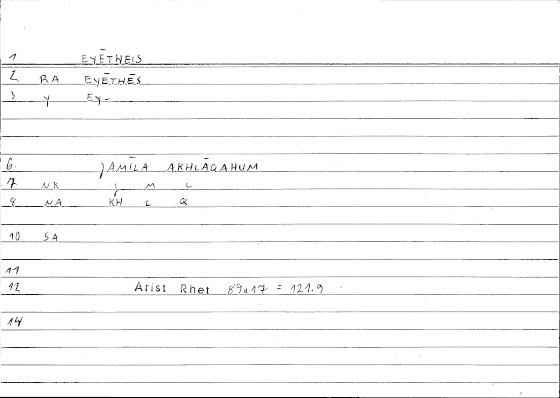 1 EYĒTHEIS
2 RA EYĒTHĒS
3 Y EY-
6. JAMĪLA AKHLĀQAHUM
7 NR J M L
8 NA KH L Q
10 SA
11
12 Arist Rhet 89a17 = 121.9
14